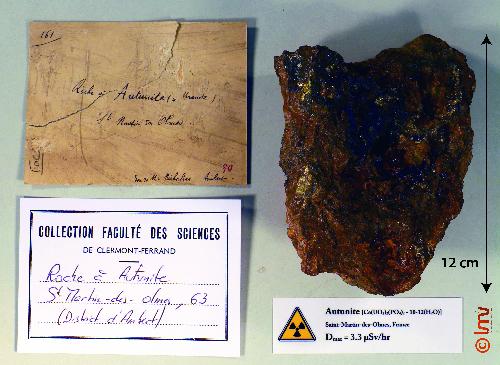 161
Roche à Autunite
St Martin des Olmes
90
COLLECTION FACULTÉ DES SCIENCES
DE CLERMONT-FERRAND
Roche à Autunite
St Martin-des-Olmes, 63
(District d'Ambert)
12 cm
Autunite [Ca(UO₂)₂(PO₄)₂ - 10-12(H₂O)]
Saint-Martin-des-Olmes, France
Dmax = 3.3 µSv/hr
© lmv